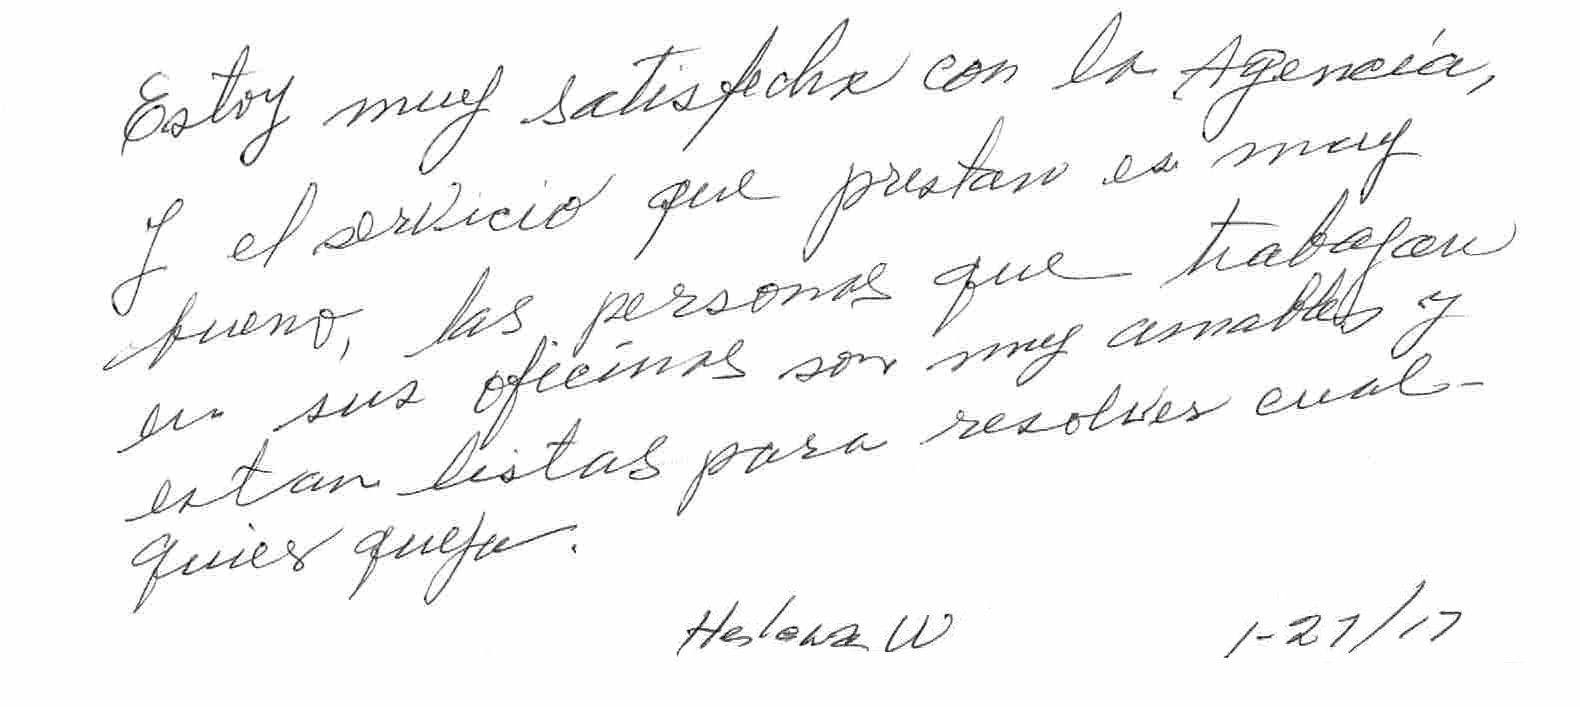 Estoy muy satisfecha con la Agencia,
y el servicio que prestan es muy
bueno, las personas que trabajan
en sus oficinas son muy amables y
estan listas para resolver cual-
quier queja.
W 1-27/17